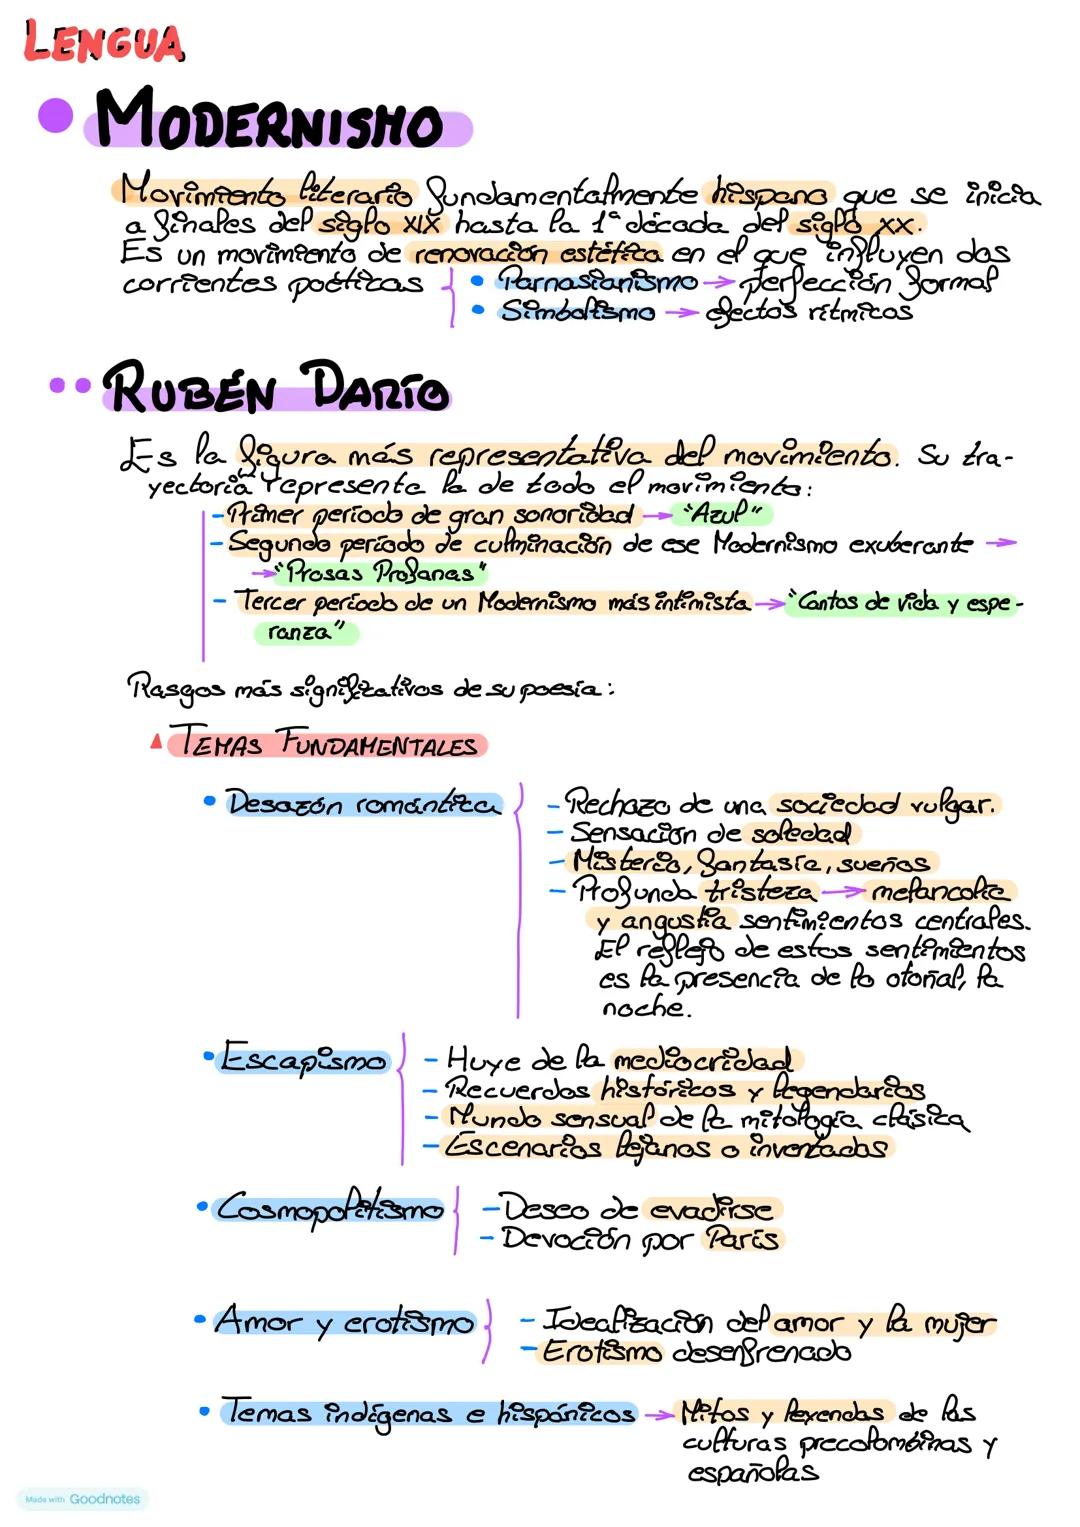 LENGUA
MODERNISMO
Movimiento literario fundamentalmente hispano que se inicia
a finales del siglo XIX hasta la 1ª década del siglo XX.
Es un movimiento de renovación estética en el que influyen dos
corrientes poéticas • Parnasianismo → perfección formal
• Simbolismo → efectos rítmicos
RUBÉN DARÍO
Es la figura más representativa del movimiento. Su tra-
yectoria representa la de todo el movimiento:
- Primer período de gran sonoridad → "Azul"
- Segundo período de culminación de ese Modernismo exuberante →
→ "Prosas Profanas"
- Tercer período de un Modernismo más intimista → "Cantos de vida y espe-
ranza"
Rasgos más significativos de su poesía:
TEMAS FUNDAMENTALES
• Desazón romántica
- Rechazo de una sociedad vulgar.
- Sensación de soledad
- Misterio, fantasía, sueños
- Profunda tristeza → melancolía
y angustia sentimientos centrales.
El reflejo de estos sentimientos
es la presencia de lo otoñal, la
noche.
• Escapismo
- Huye de la mediocridad
- Recuerdos históricos y legendarios
- Mundo sensual de la mitología clásica
- Escenarios lejanos o inventados
• Cosmopolitismo
- Deseo de evadirse
- Devoción por París
• Amor y erotismo
- Idealización del amor y la mujer
- Erotismo desenfrenado
• Temas indígenas e hispánicos → Mitos y leyendas de las
culturas precolombinas y
españolas
Made with Goodnotes